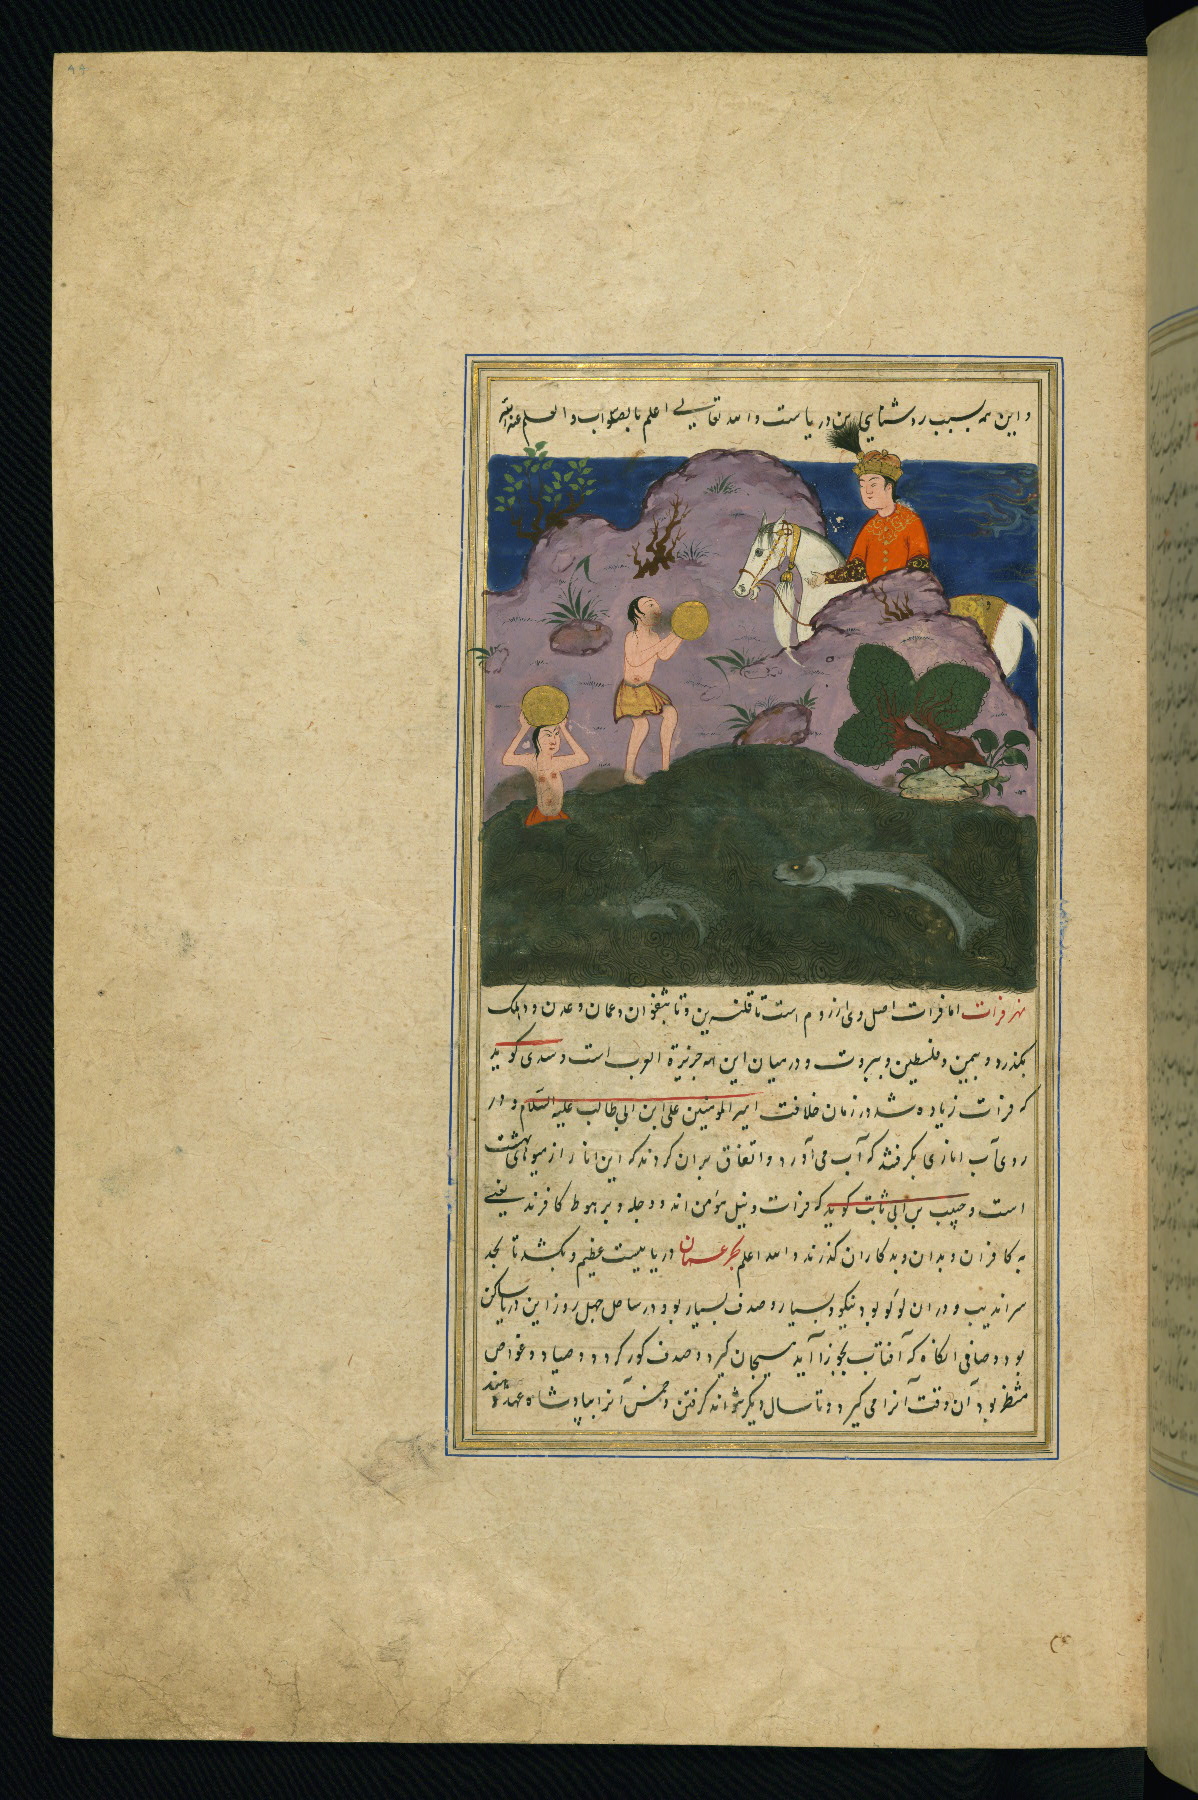 و این همه بسبب روشنایی این دریاست والله تعالی اعلم بالصواب و العلم عند الله
نهر فرات اما فرات اصل وی ارزروم است تا قلنسرین و تا بثغوان و عمان و عدن و
بگذرد و بیمین و فلسطین و بیروت و در میان این همه جزیرة العرب است و سدی کوید
که فرات زیاده شد در زمان خلافت امیر المومنین علی ابن ابی طالب علیه السلام و در
روی آب اناری بگرفتند که آب می آورد و اتفاق بران کردند که این انار از میوهای بهشت
است و حبیب بن ابی ثابت کوید که فرات و نیل مؤمن اند و دجله و برهوط کافرند یعنی
به کافران و بدان و بدکاران گذرند والله اعلم بحر عمان دریاییست عظیم و بکشد تا بحد
سراندیب و دران لولو بود نیکو و بسیار و صدف بسیار بود در ساحل چهل روز این دریا ساکن
بود و صافی انگاه که آفتاب بجوزا آید هیجان گیرد و صدف کور گردد و صیاد و غواص
منتظر بود آن وقت آنرا می گیرد و تا سال دیگر نتواند گرفتن و خمس آنرا بپادشاه عهد